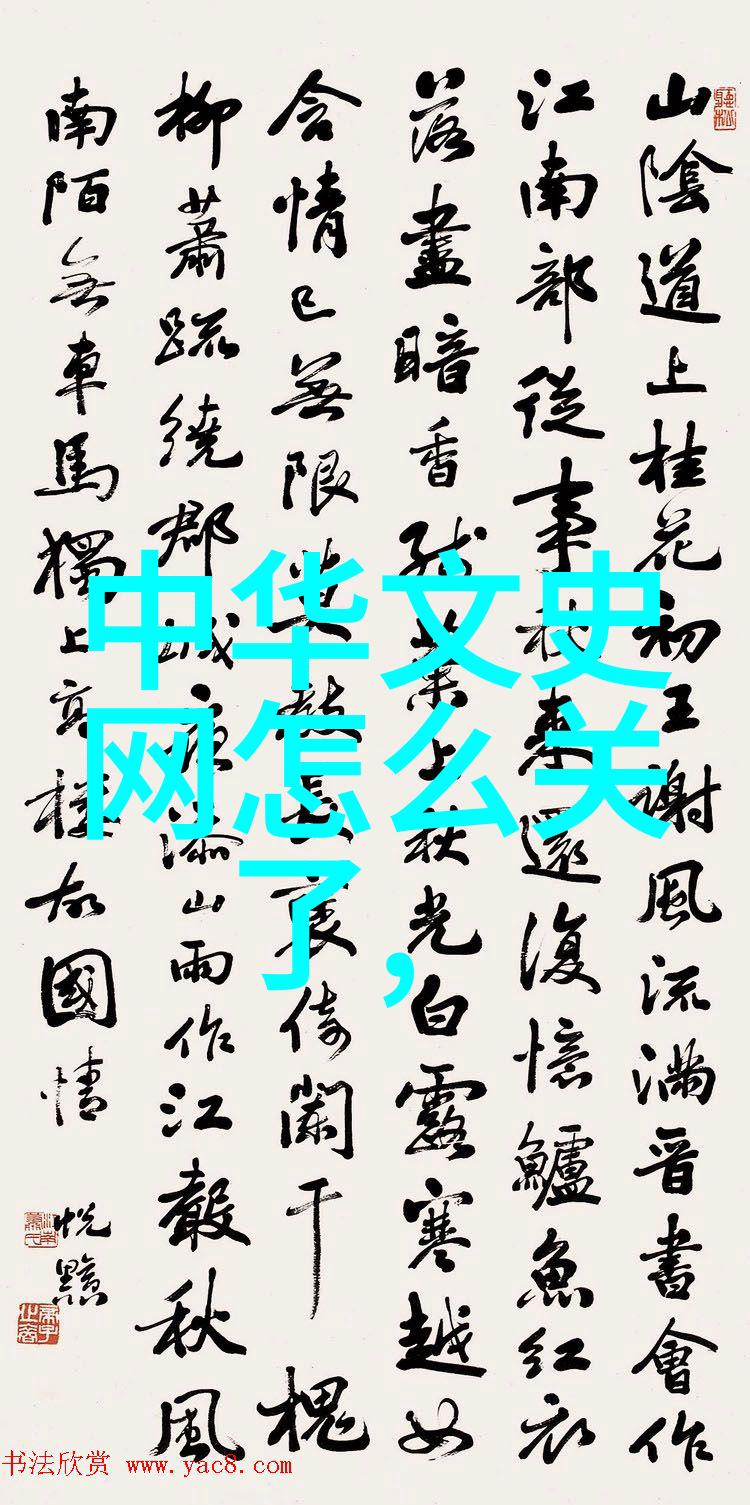 山陰道上桂花初王謝風流滿晉書會作
江南部從事秋來還復憶鱸魚紅衣
落盡暗香殘葉上秋光白露寒越女
含情已無限莫教長袖倚闌干槐
柳蕭疏繞郡城夜添山雨作江聲秋風
南陌無車馬獨上高樓故國情
中华文史
网怎么关
了，
书法欣赏 www.yac8.com